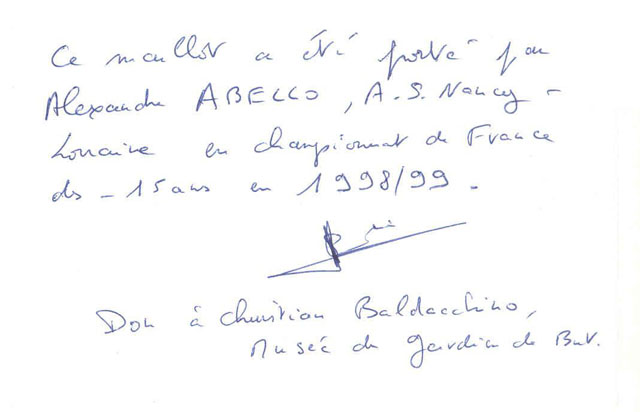 Ce maillot a été porté par
Alexandre ABELLO, A.S. Nancy -
Lorraine en championnat de France
des - 15 ans en 1998/99.
Don à Christian Baldacchino,
Musée du gardien de But.